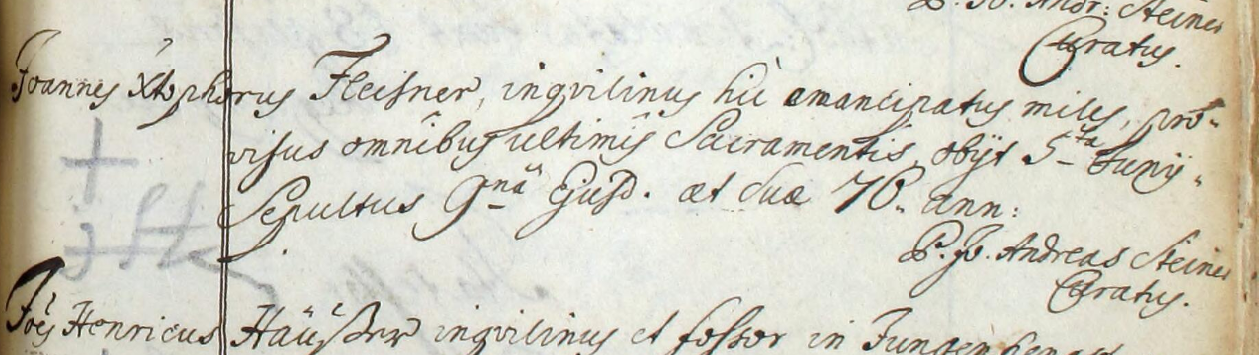 P. Jo. Andr: Steiner
Curatus.
Joannes Xtophorus Fleisner, inqvilinus hic emancipatus miles, pro-
visus omnibus ultimis Sacramentis, obijt 5ta Junij,
Sepultus 9nâ Ejusd. æt Suæ 76. ann:
P. Jo. Andreas Steiner
Curatus.
Joes Henricus Häußer inqvilinus et fossor in